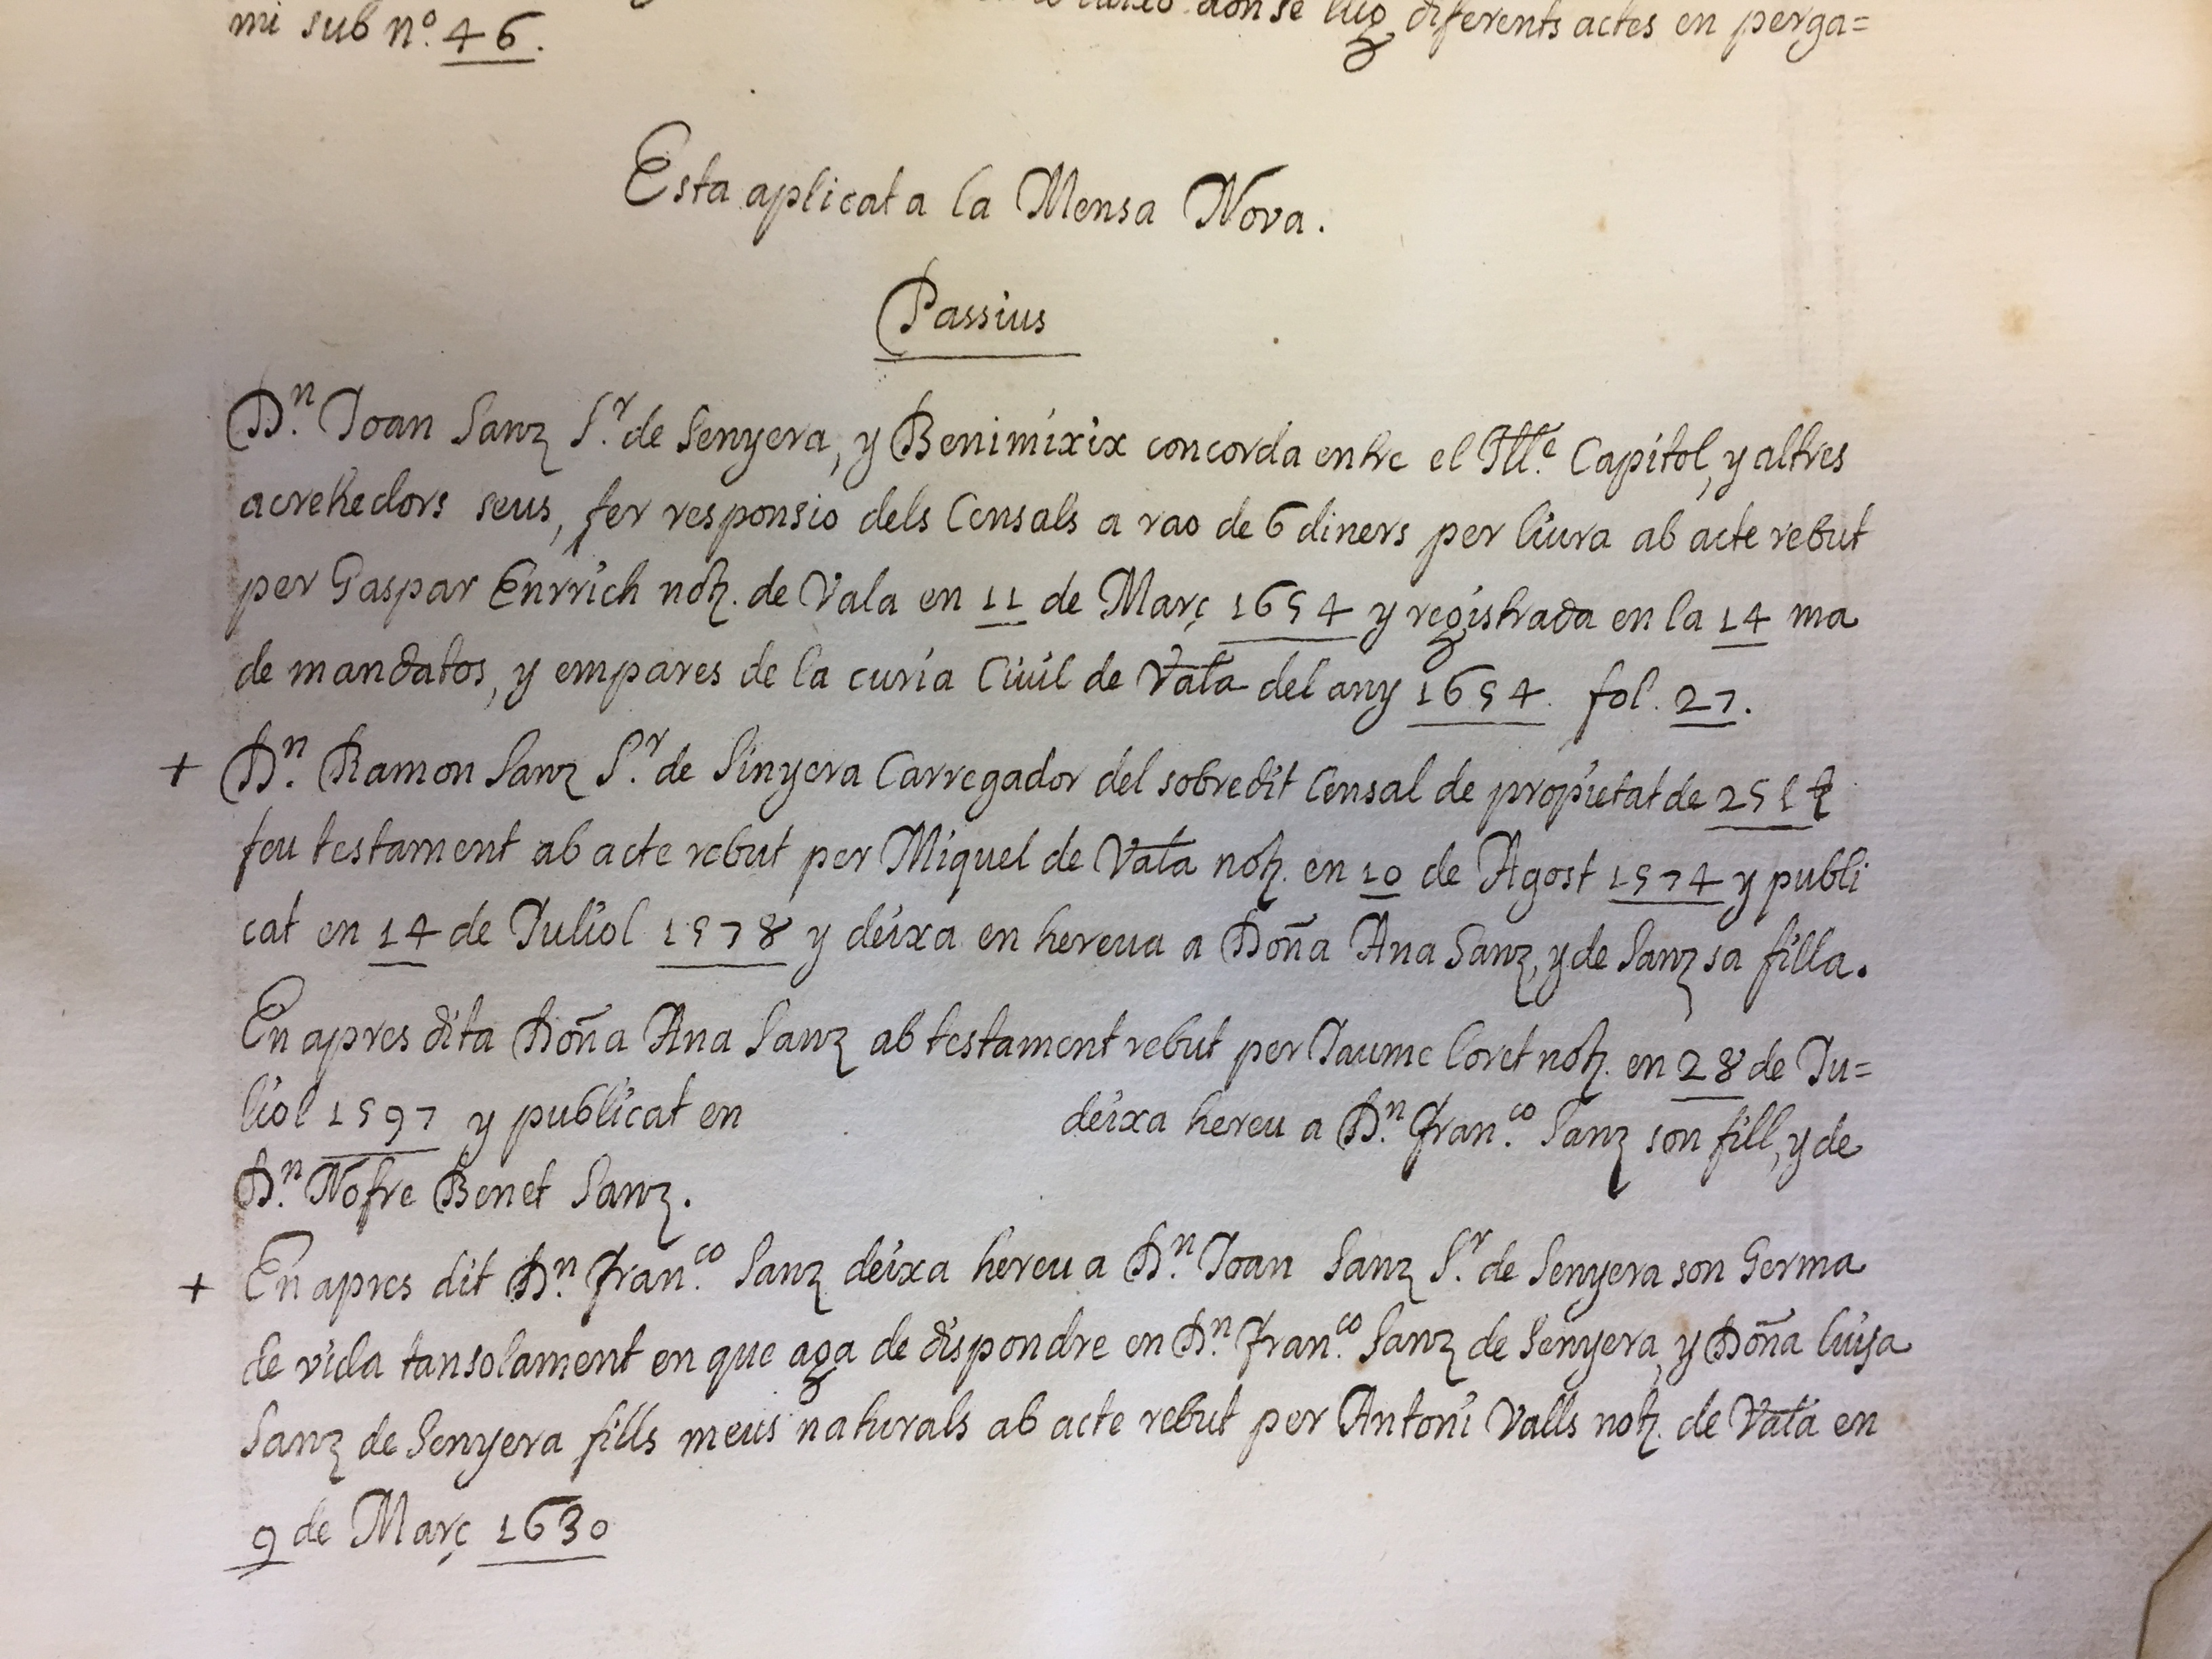 don se lig diferents actes en perga=
mi sub nº. 46.
Esta aplicat a la Mensa Nova.
Passius
Dn. Joan Sanz Sr. de Senyera, y Benimixix concorda entre el Ille. Capitol, y altres
acrehedors seus, fer responsio dels Censals a rao de 6 diners per liura ab acte rebut
per Gaspar Enrrich notz. de Vala en 11 de Març 1654 y registrada en la 14 ma
de mandatos, y empares de la curia Civil de Vala del any 1654. fol. 27.
+ Dn. Ramon Sanz Sr. de Sinyera Carregador del sobredit Censal de propietat de
feu testament ab acte rebut per Miquel de Vala notz. en 10 de Agost 1574 y publi
cat en 14 de Juliol 1578 y deixa en hereua a Doña Ana Sanz, y de Sanz sa filla.
En apres dita Doña Ana Sanz ab testament rebut per Jaume Loret notz. en 28 de Ju=
liol 1597 y publicat en deixa hereu a Dn. Fran.co Sanz son fill, y de
Dn. Nofre Benet Sanz.
+ En apres dit Dn. Fran.co Sanz deixa hereu a Dn. Joan Sanz Sr. de Senyera son Germa
de vida tansolament en que aga de dispondre en Dn. Fran.co Sanz de Senyera, y Doña Luisa
Sanz de Senyera fills meus naturals ab acte rebut per Antoni Valls notz. de Vala en
9 de Març 1630